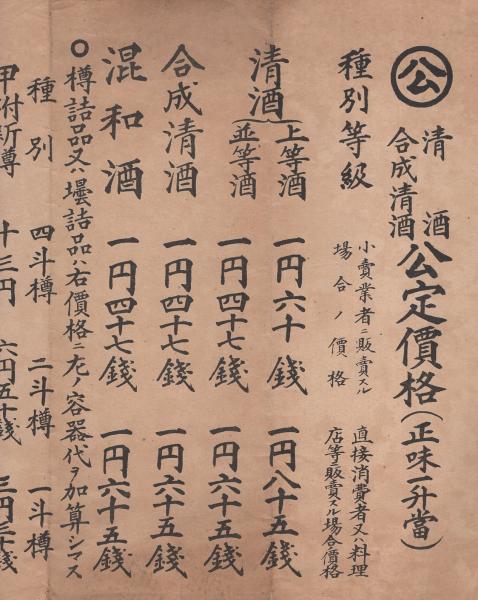 公
清酒
合成清酒
公定價格(正味一升當)
種別等級
小賣業者ニ販賣スル
場合ノ價格
直接消費者又ハ料理
店等ニ販賣スル場合價格
清酒
上等酒 一円六十錢 一円八十五錢
並等酒 一円四十七錢 一円六十五錢
合成清酒 一円四十七錢 一円六十五錢
混和酒 一円四十七錢 一円六十五錢
○樽詰品又ハ壜詰品ハ右價格ニ左ノ容器代ヲ加算シマス
種別 四斗樽 二斗樽 一斗樽
甲附新樽 十三円 六円五十錢 三円三十錢